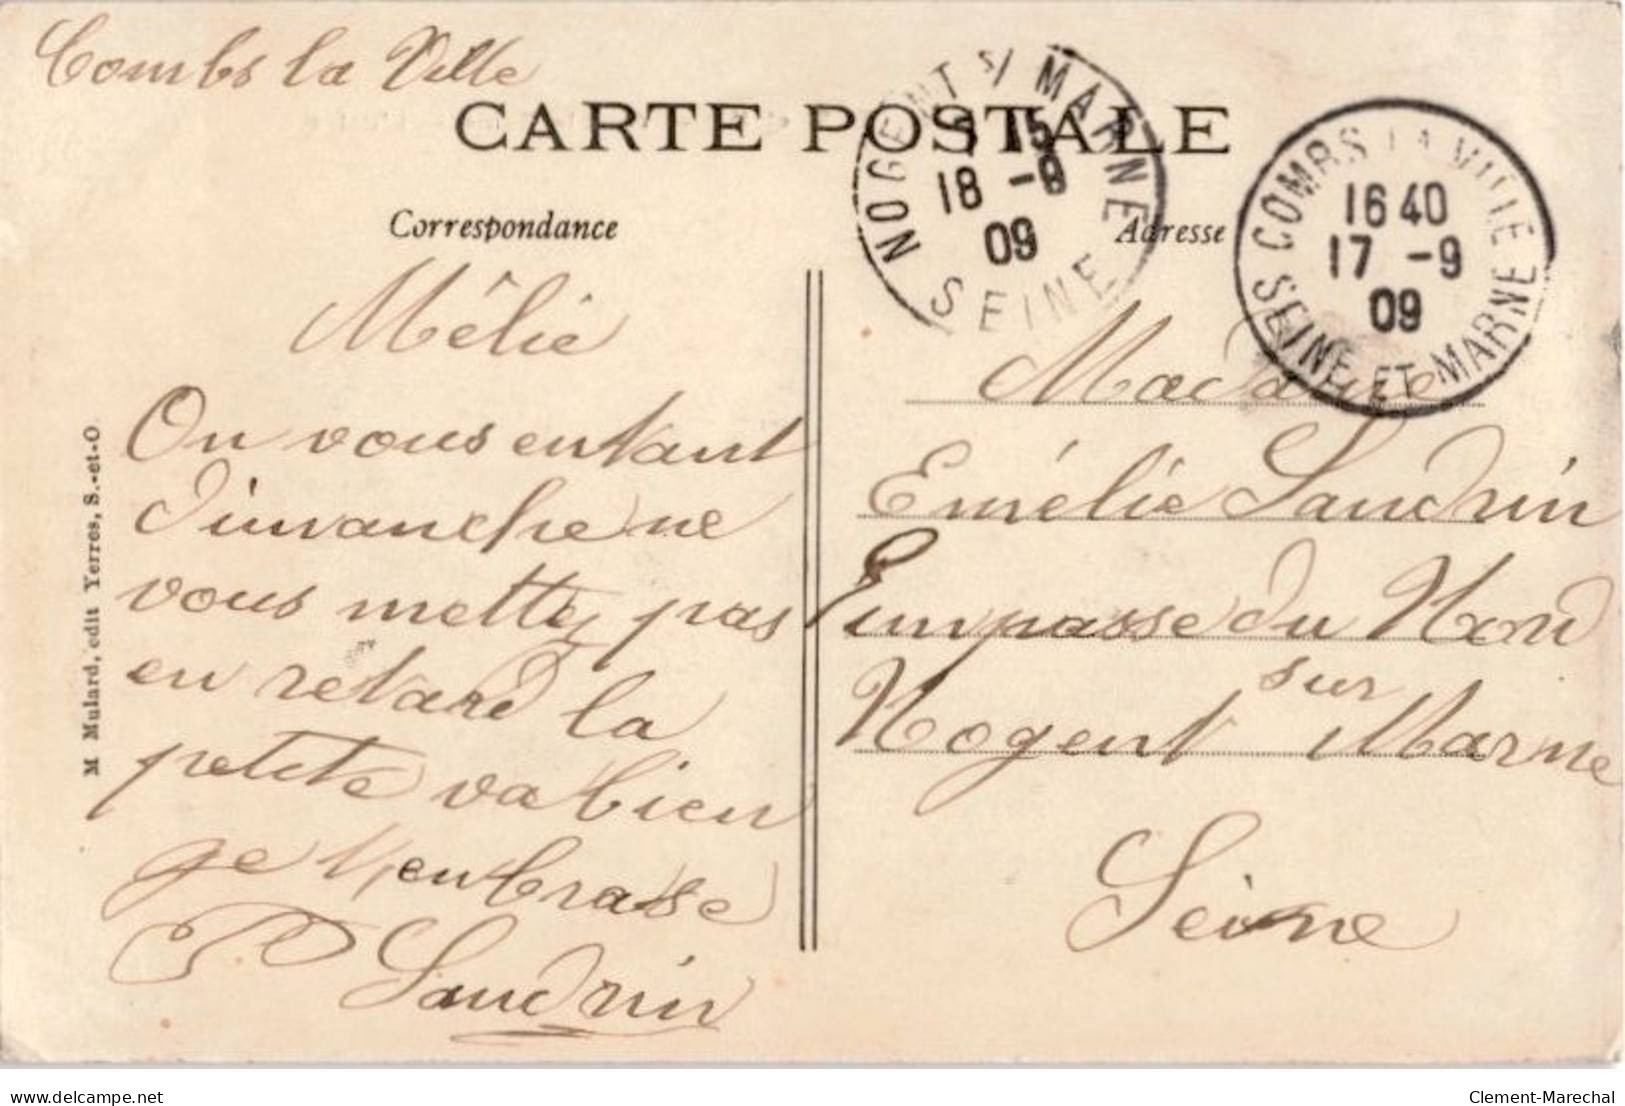 Combs la Ville
CARTE POSTALE
Correspondance
Adresse
NOGENT S/ MARNE
15
18 -9
09
SEINE
COMBS LA VILLE
16 40
17 -9
09
SEINE ET MARNE
Mélie
On vous entant
dimanche ne
vous mettez pas
en retard la
petite va bien
ge t,enbrasse
P Sandrin
Madame
Emélie Sandrin
impasse du Nord
Nogent sur Marne
Seine
M Mulard, edit Yerres, S.-et-O
delcampe.net
Clement-Marechal